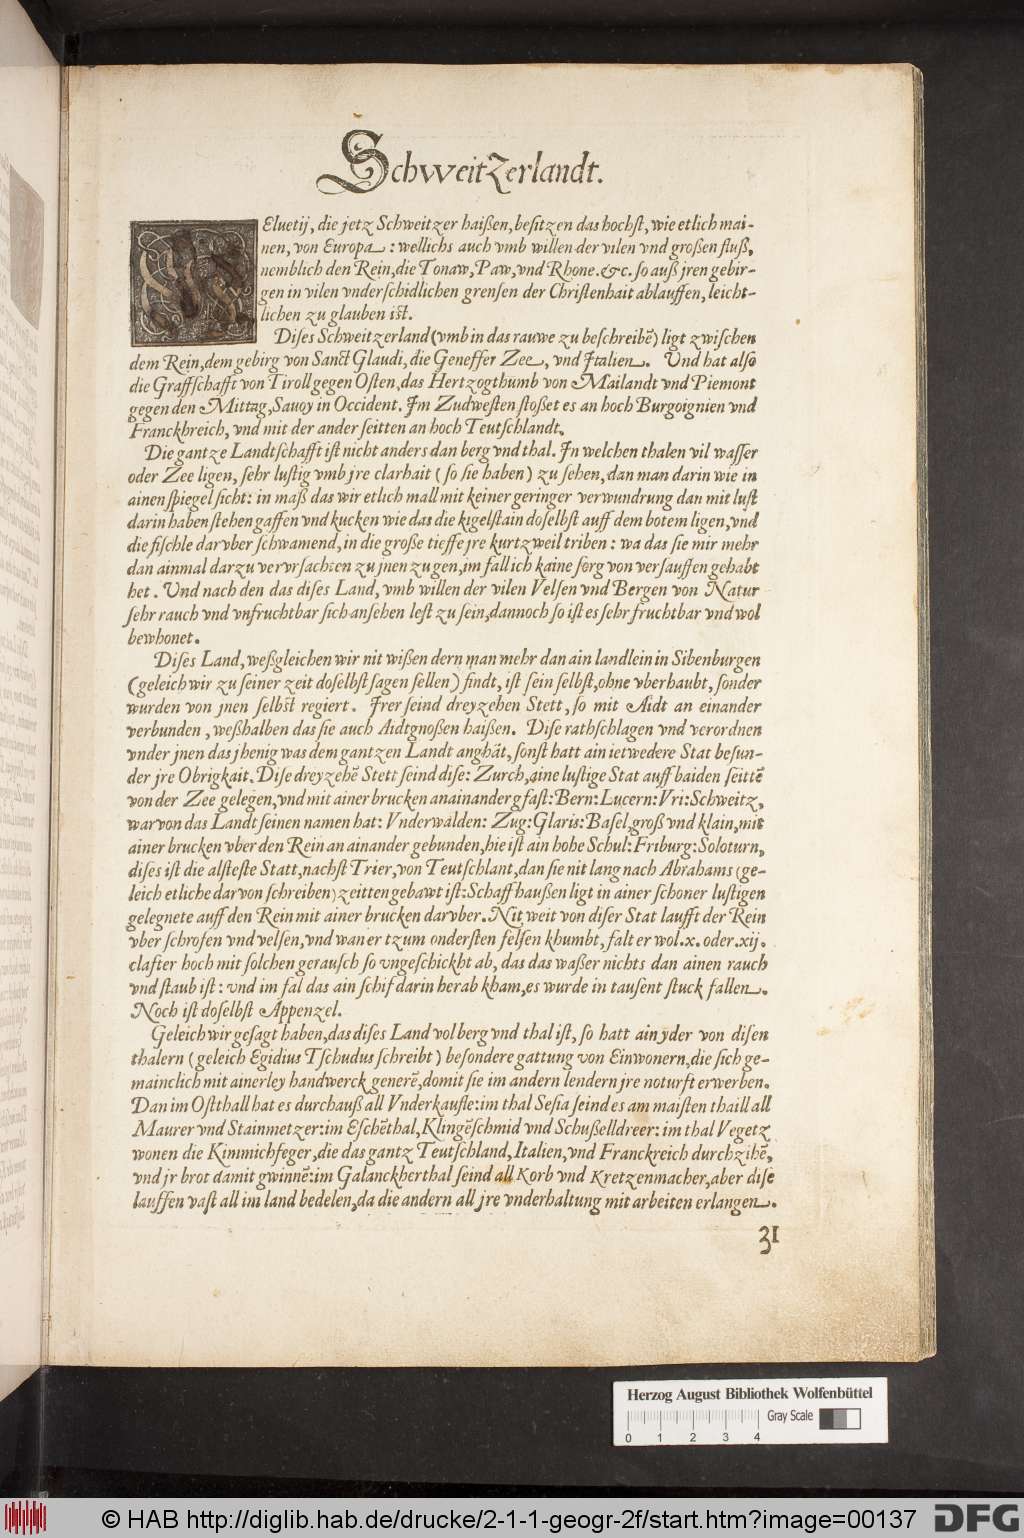 Schweitzerlandt.
HEluetij, die jetz Schweitzer haißen, besitzen das hochst, wie etlich mai-
nen, von Europa : wellichs auch vmb willen der vilen vnd großen fluß,
nemblich den Rein, die Tonaw, Paw, vnd Rhone. &c. so auß jren gebir-
gen in vilen vnderschidlichen grensen der Christenhait ablauffen, leicht-
lichen zu glauben ist.
Dises Schweitzerland (vmb in das rauwe zu beschreibē) ligt zwischen
dem Rein, dem gebirg von Sanct Glaudi, die Geneffer Zee, vnd Italien. Vnd hat also
die Graffschafft von Tiroll gegen Osten, das Hertzogthumb von Mailandt vnd Piemont
gegen den Mittag, Sauoy in Occident. Im Zudwesten stoßet es an hoch Burgoignien vnd
Franckhreich, vnd mit der ander seitten an hoch Teutschlandt.
Die gantze Landtschafft ist nicht anders dan berg vnd thal. In welchen thalen vil wasser
oder Zee ligen, sehr lustig vmb jre clarhait ( so sie haben ) zu sehen, dan man darin wie in
ainen spiegel sicht: in maß das wir etlich mall mit keiner geringer verwundrung dan mit lust
darin haben stehen gaffen vnd kucken wie das die kigelstain doselbst auff dem botem ligen, vnd
die fischle darvber schwamend, in die große tieffe jre kurtzweil triben : wa das sie mir mehr
dan ainmal darzu vervrsachten zu jnen zu gen, im fall ich kaine sorg von versauffen gehabt
het. Vnd nach den das dises Land, vmb willen der vilen Velsen vnd Bergen von Natur
sehr rauch vnd vnfruchtbar sich ansehen lest zu sein, dannoch so ist es sehr fruchtbar vnd wol
bewhonet.
Dises Land, weßgleichen wir nit wißen dern man mehr dan ain landlein in Sibenburgen
(geleich wir zu seiner zeit doselbst sagen sellen) findt, ist sein selbst, ohne vberhaubt, sonder
wurden von jnen selbst regiert. Irer seind dreyzehen Stett, so mit Aidt an einander
verbunden, weßhalben das sie auch Aidtgnoßen haißen. Dise rathschlagen vnd verordnen
vnder jnen das jhenig was dem gantzen Landt anghāt, sonst hatt ain ietwedere Stat besun-
der jre Obrigkait. Dise dreyzehē Stett seind dise: Zurch, aine lustige Stat auff baiden seittē
von der Zee gelegen, vnd mit ainer brucken anainander gfast: Bern: Lucern: Vri: Schweitz,
war von das Landt seinen namen hat: Vnderwalden: Zug: Glaris: Basel, groß vnd klain, mit
ainer brucken vber den Rein an ainander gebunden, hie ist ain hohe Schul: Friburg: Soloturn,
dises ist die alsteste Statt, nachst Trier, von Teutschlant, dan sie nit lang nach Abrahams (ge-
leich etliche darvon schreiben) zeitten gebawt ist: Schaffhaußen ligt in ainer schoner lustigen
gelegnete auff den Rein mit ainer brucken darvber. Nit weit von diser Stat laufft der Rein
vber schrofen vnd velsen, vnd wan er tzum ondersten felsen khumbt, falt er wol .x. oder .xij.
clafter hoch mit solchen gerausch so vngeschickht ab, das das waßer nichts dan ainen rauch
vnd staub ist : vnd im fal das ain schif darin herab kham, es wurde in tausent stuck fallen.
Noch ist doselbst Appenzel.
Geleich wir gesagt haben, das dises Land vol berg vnd thal ist, so hatt ain yder von disen
thalern ( geleich Egidius Tschudus schreibt ) besondere gattung von Einwonern, die sich ge-
mainclich mit ainerley handwerck generē, domit sie im andern lendern jre noturft erwerben.
Dan im Ostthall hat es durchauß all Vnderkaufle: im thal Sesia seind es am maisten thaill all
Maurer vnd Stainmetzer: im Eschēthal, Klingēschmid vnd Schußelldreer: im thal Vegetz
wonen die Kimmichfeger, die das gantz Teutschland, Italien, vnd Franckreich durchzihē,
vnd jr brot damit gwinnē: im Galanckherthal seind all Korb vnd Kretzenmacher, aber dise
lauffen vast all im land bedelen, da die andern all jre vnderhaltung mit arbeiten erlangen.
31
Herzog August Bibliothek Wolfenbüttel
Gray Scale
0 1 2 3 4
© HAB http://diglib.hab.de/drucke/2-1-1-geogr-2f/start.htm?image=00137
DFG